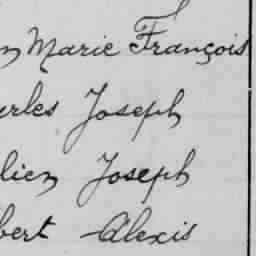 n Marie François
erles Joseph
lien Joseph
bert Alexis